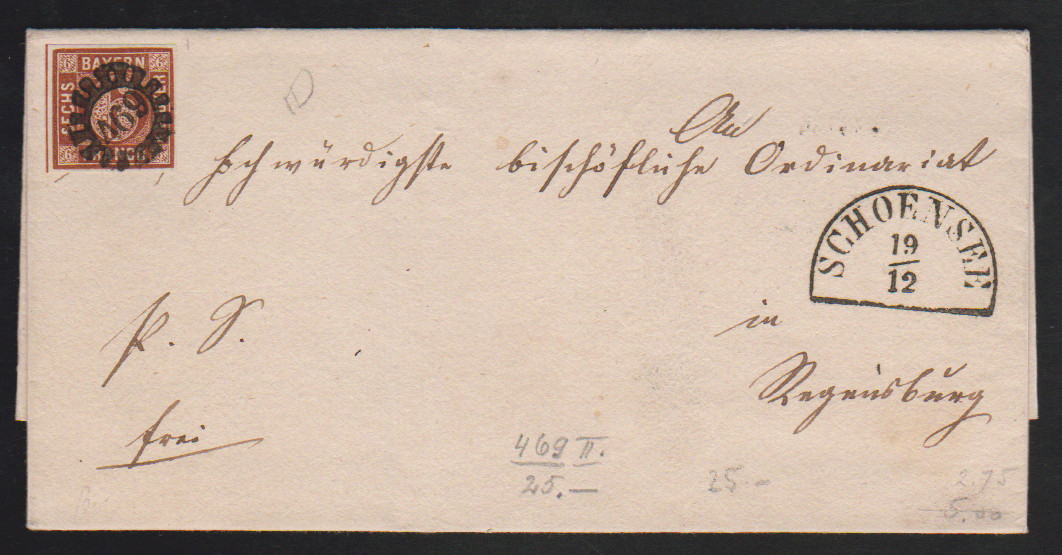 6 BAYERN 6
SECHS
469
6
An
Hochwürdigste bischöfliche Ordinariat
SCHOENSEE
19
12
in
P. S.
Regensburg
frei
469 II.
25.—
25.—
2.75
5.00